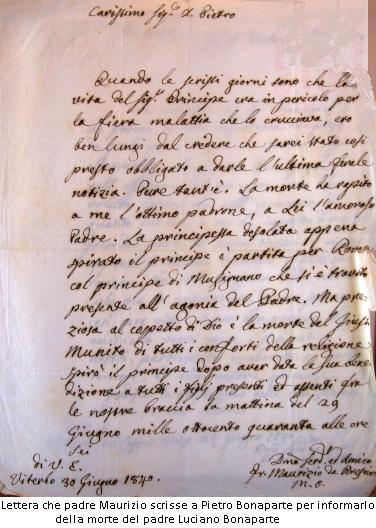 Carissimo Sig.e D. Pietro
Quando le scrissi giorni sono che la
vita del Sig.r Principe era in pericolo per
la fiera malattia che lo cruciava, ero
ben lungi dal credere che sarei stato così
presto obbligato a darle l'ultima ferale
notizia. Pure tant'è. La morte ha rapito
a me l'ottimo padrone, a Lei l'amoroso
Padre. La principessa desolata appena
spirato il principe è partita per Roma
col principe di Musignano che si è trovato
presente all'agonia del Padre. Ma pre-
ziosa al cospetto di Dio è la morte del Giusto
Munito di tutti i conforti della religione
spirò il principe dopo aver data la sua bene
dizione a tutti i figli presenti ed assenti fra
le nostre braccia la mattina del 29
Giugno mille ottocento quaranta alle ore
sei
di V. E.
Viterbo 30 Giugno 1840.
ed Amico
Maurizio da Brescia
M. O.
Lettera che padre Maurizio scrisse a Pietro Bonaparte per informarlo
della morte del padre Luciano Bonaparte